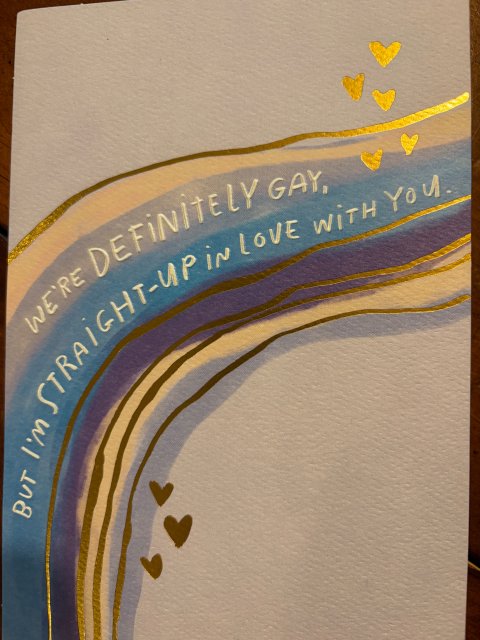 WE'RE DEFINITELY GAY,
BUT I'M STRAIGHT-UP IN LOVE WITH YOU.